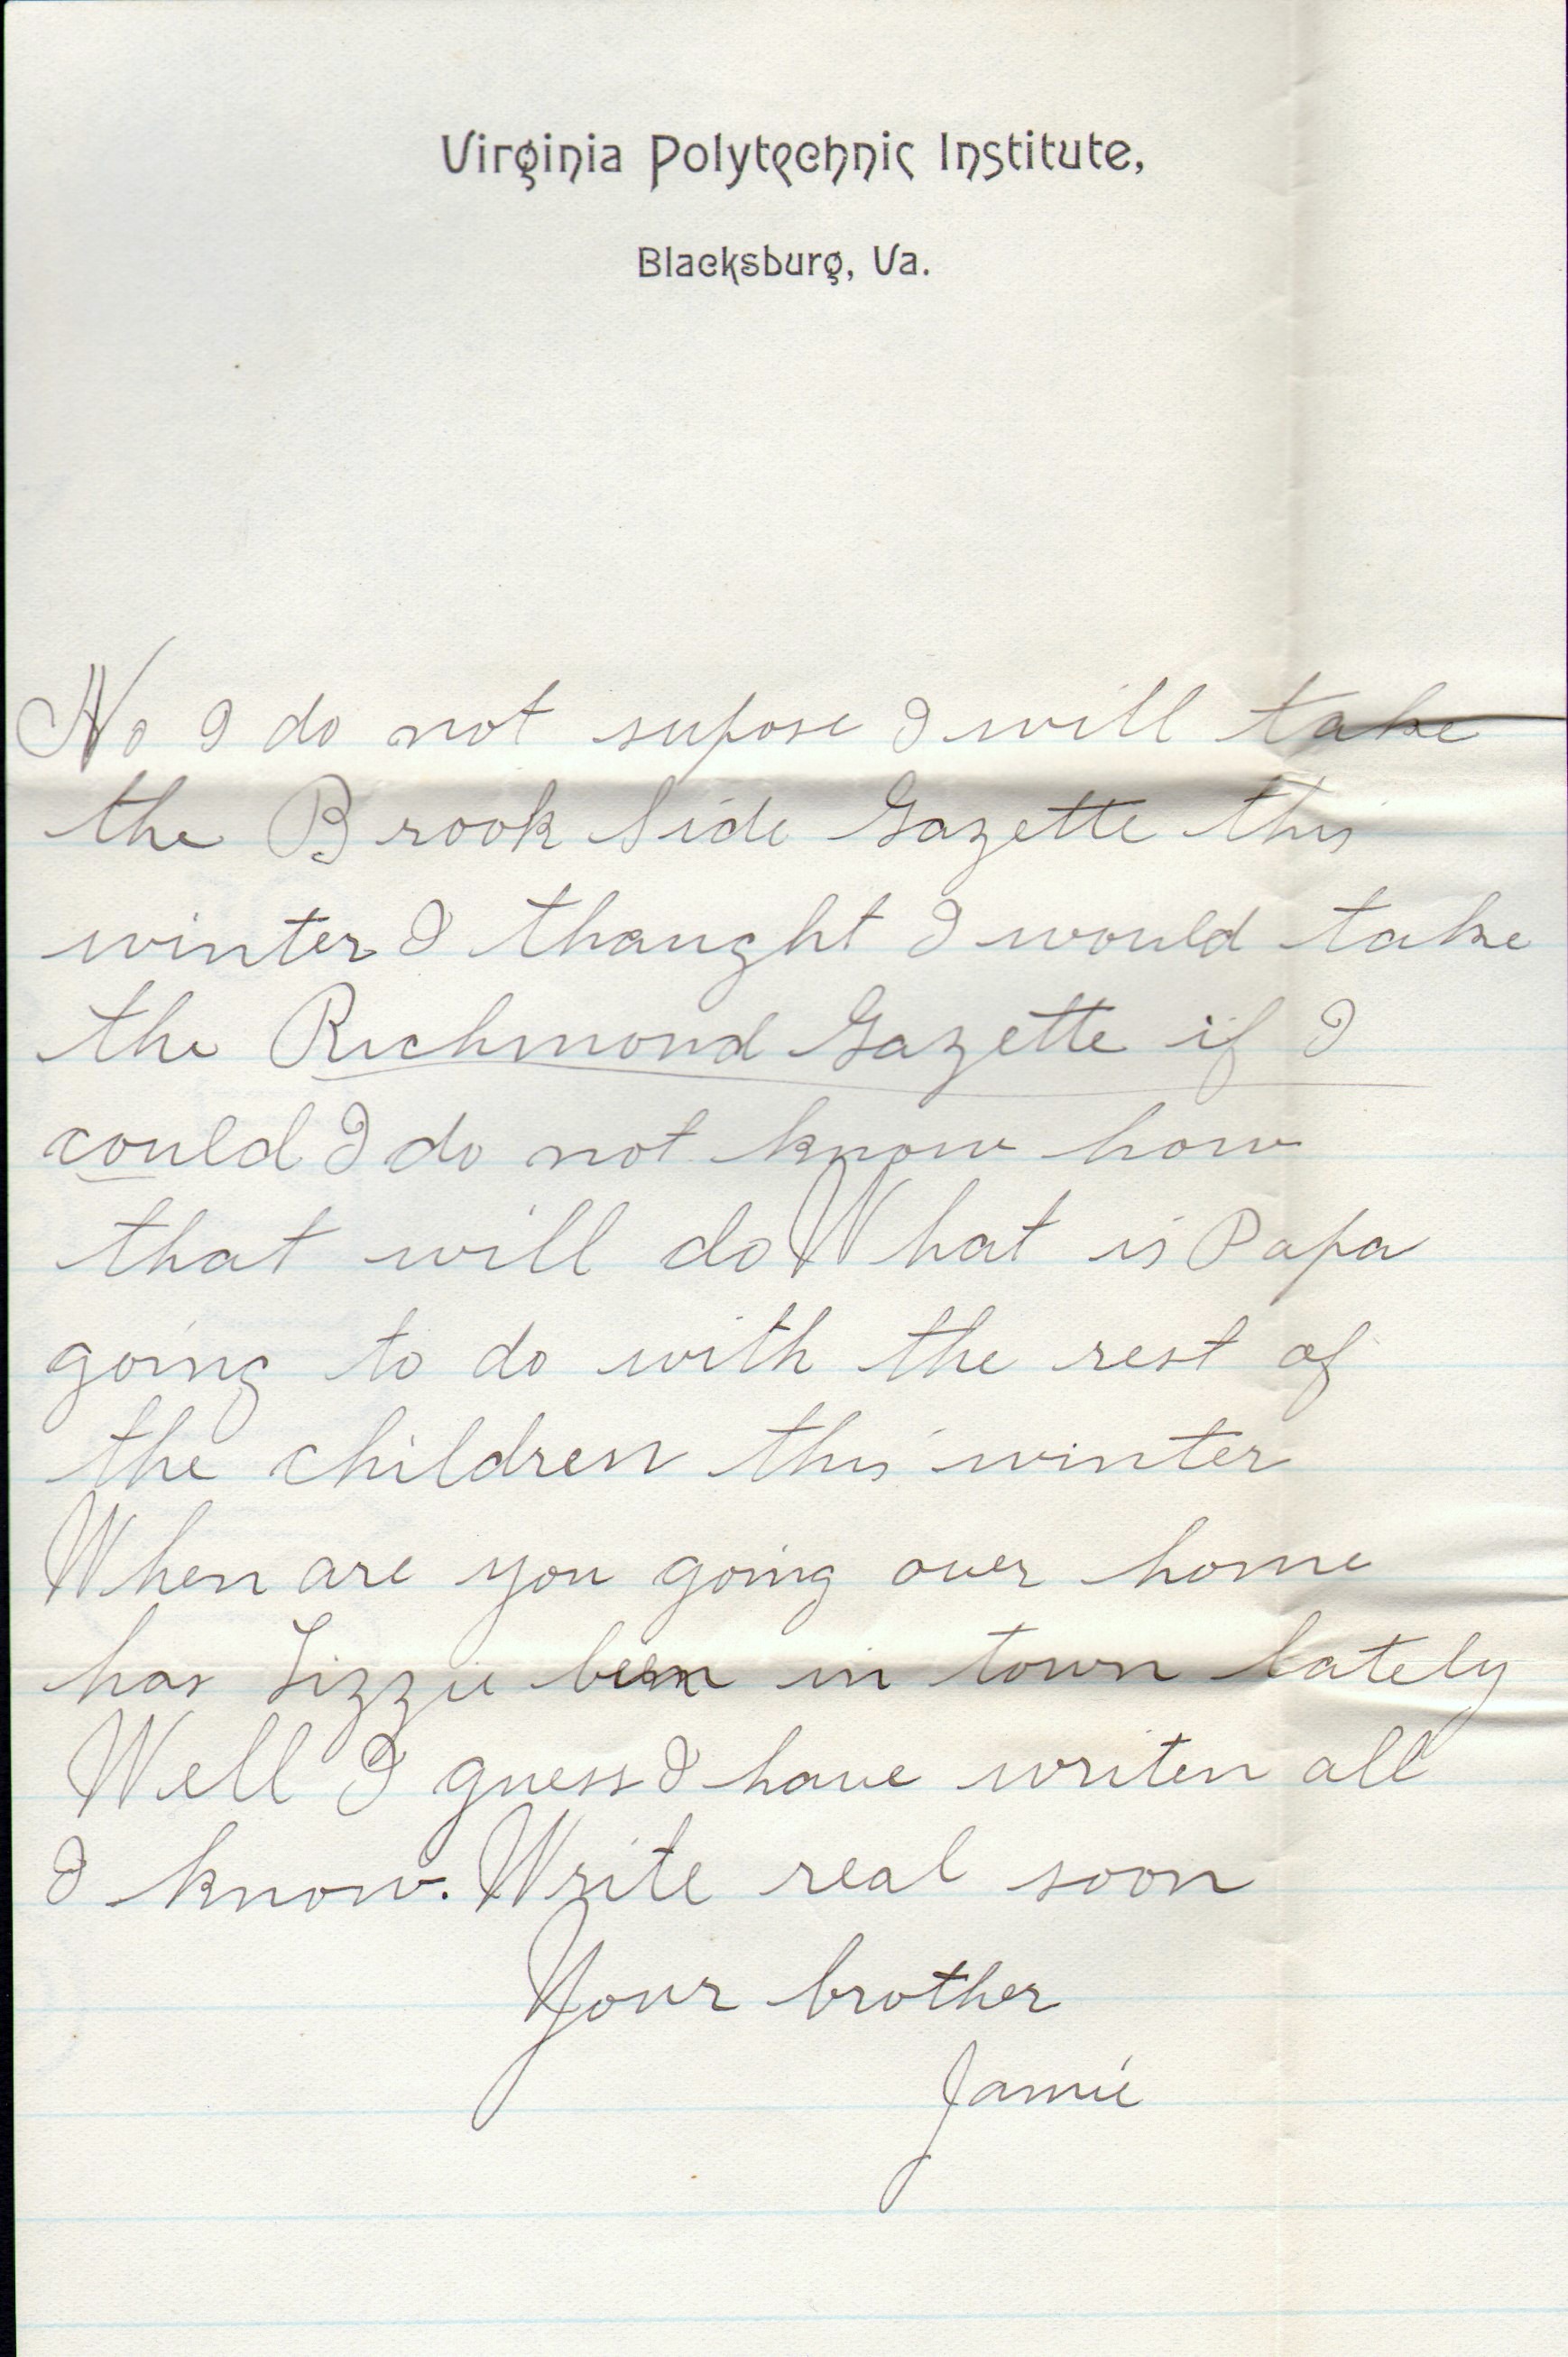 Virginia Polytechnic Institute,
Blacksburg, Va.
No I do not supose I will take
the Brook Side Gazette this
winter I thaught I would take
the Richmond Gazette if I
could I do not know how
that will do What is Papa
going to do with the rest of
the children this winter
When are you going over home
has Lizzie been in town lately
Well I guess I have writen all
I know. Write real soon
Your brother
Jamie